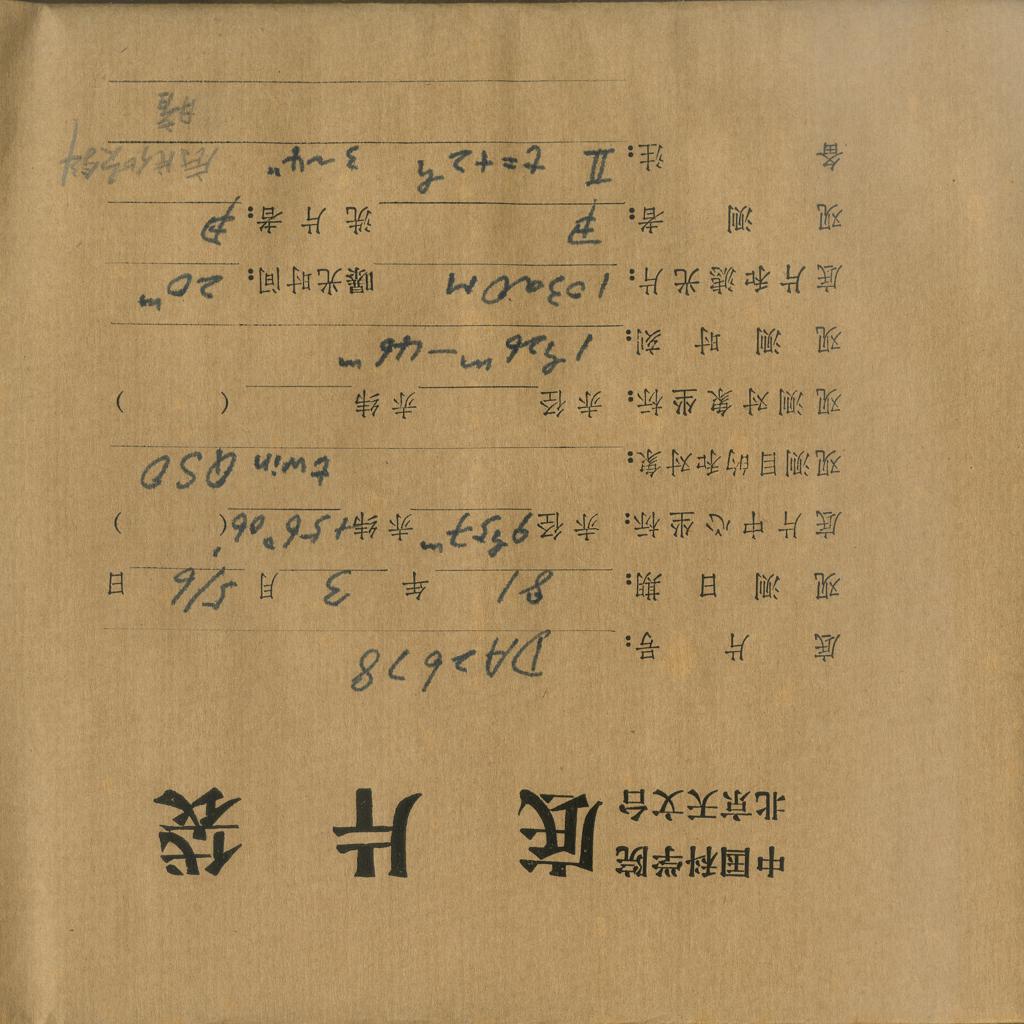 中国科学院
北京天文台 底片袋
底片号: DA2678
观测日期: 81年3月5/6日
底片中心坐标: 赤径9h57m赤纬+56°06'( )
观测目的和对象: twin QSO
观测对象坐标: 赤径 赤纬 ( )
观测时刻: 1h26m—46m
底片和滤光片: 103aO M 曝光时间: 20m
观测者: 尹 洗片者: 尹
备注: II t=+2h 3~4"